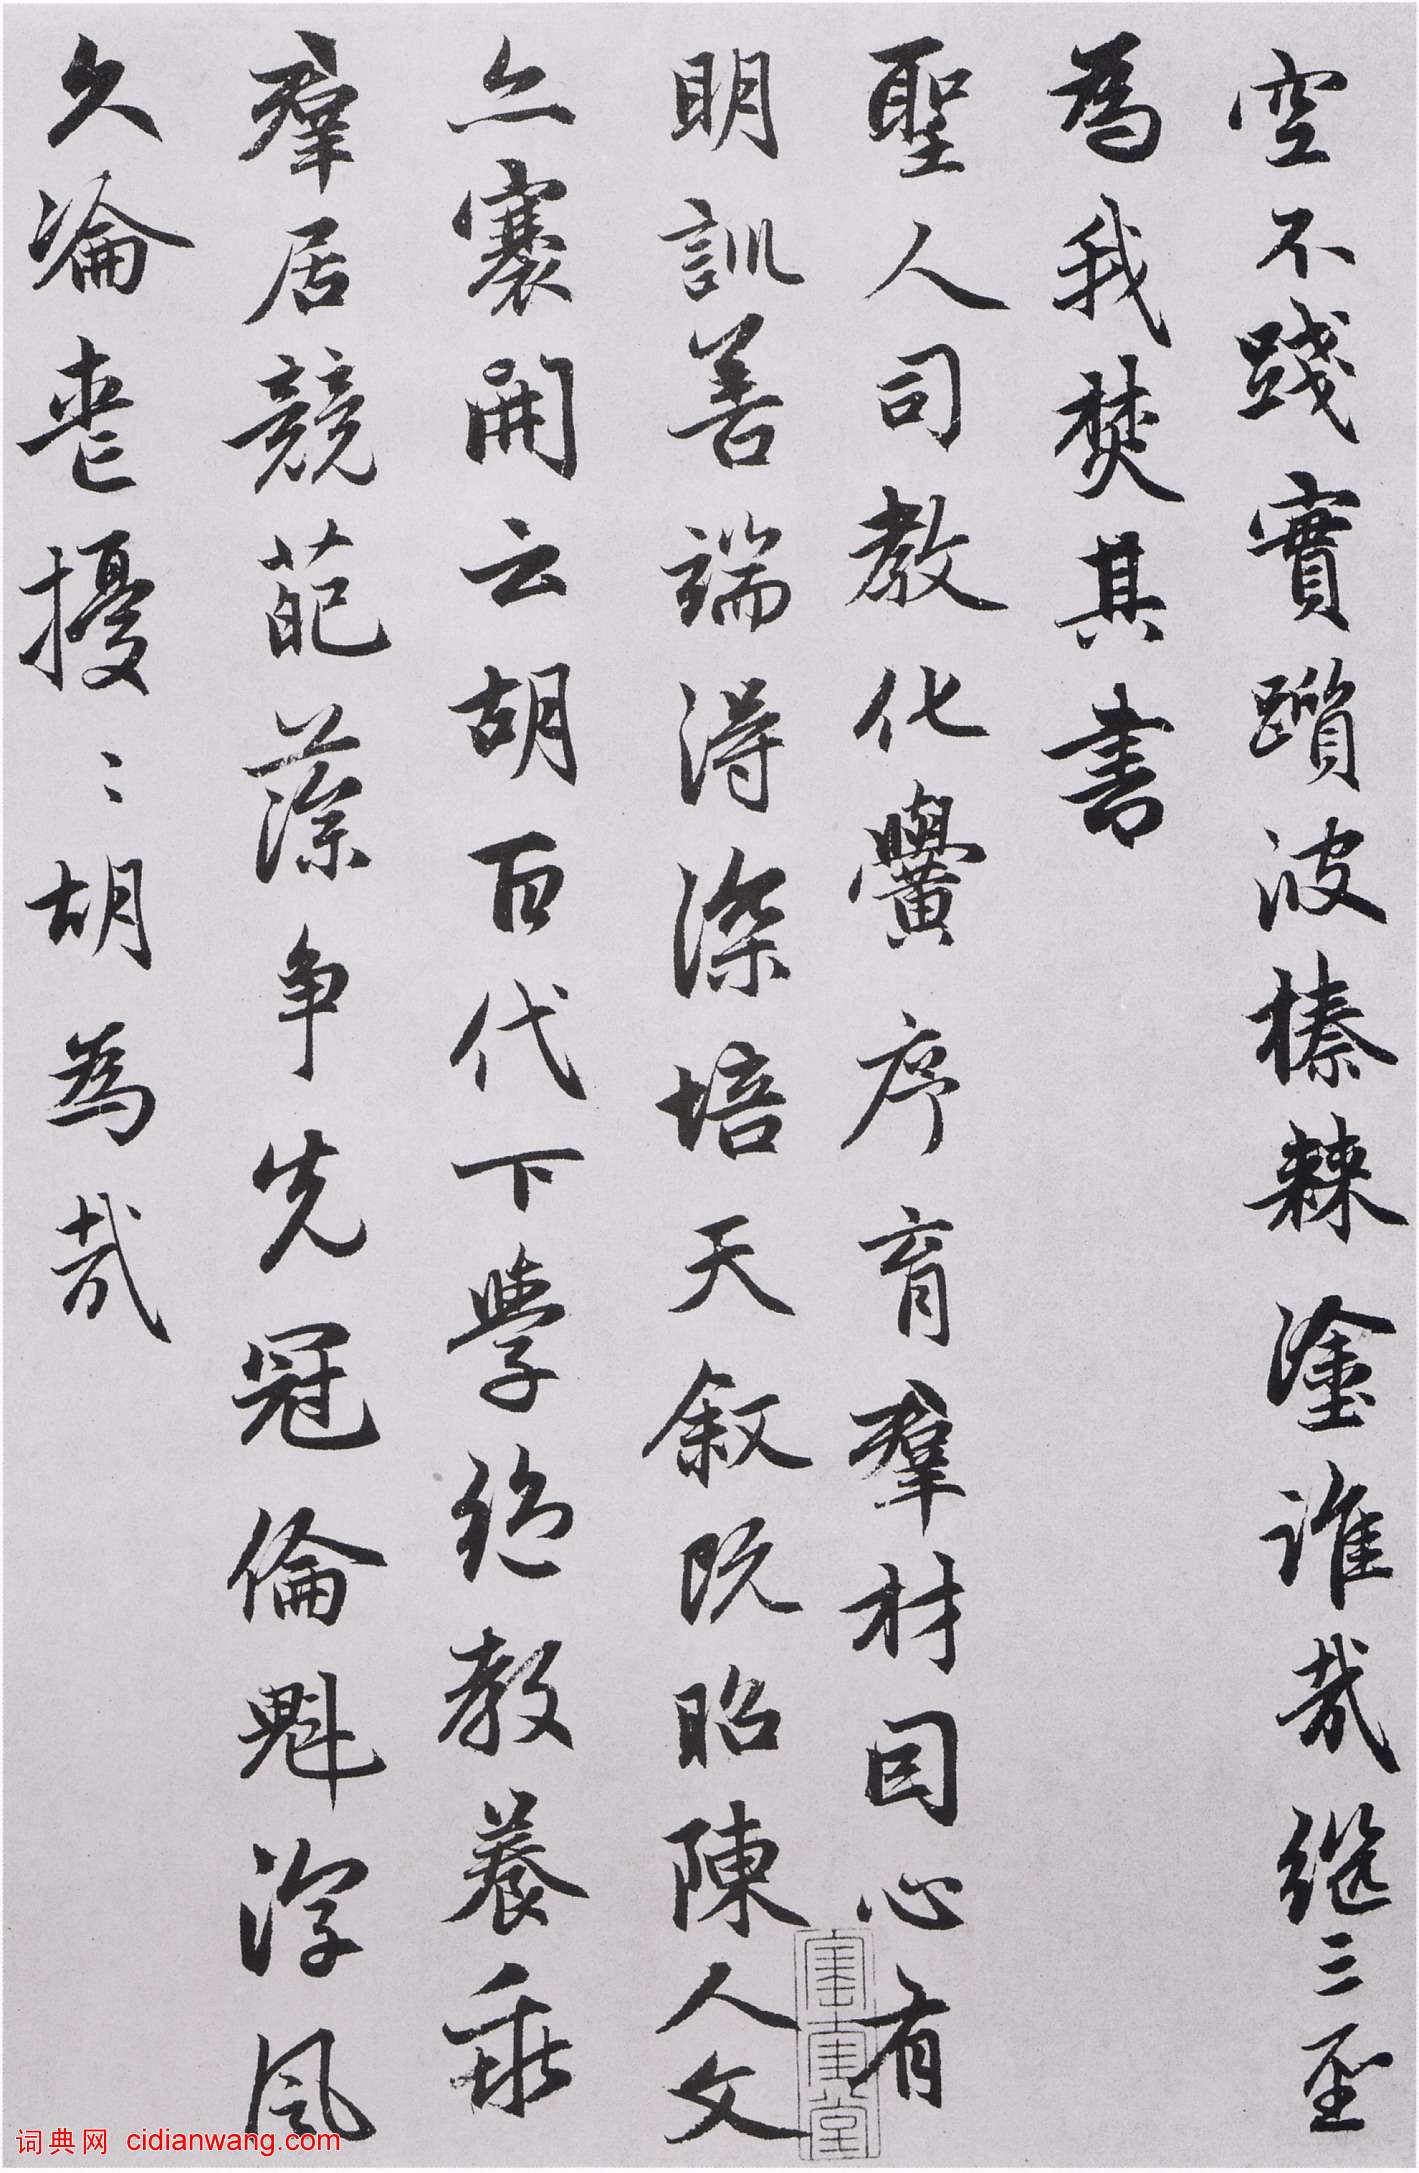 空不踐實躓彼榛棘塗誰哉繼三聖
為我焚其書
聖人司教化黌序育羣材因心有
明訓善端得深培天敘既昭陳人文
亦褰開云胡百代下學絕教養乖
羣居競葩藻爭先冠倫魁淳風
久淪喪擾〻胡為哉
词典网 cidianwang.com